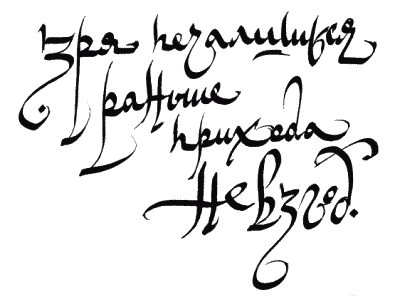 зря печалишься
раньше
прихода
невзгод.